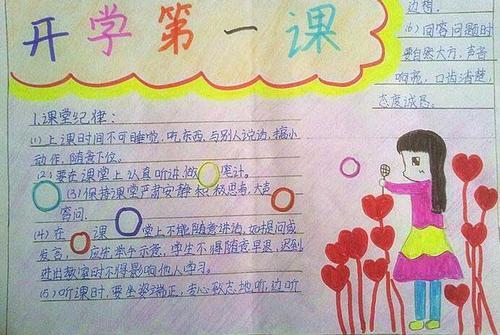 开学第一课
1.课堂纪律:
(1)上课时间不可睡觉,吃东西,与别人说话,搞小
动作,随意下位。
(2)要在课堂上认真听讲,做 笔记。
(3)保持课堂严肃安静,积极思考,大声
答问.
(4)在 课 堂上不能随意讲话,如提问或
发言, 应先举手示意,学生不得随意早退,迟到
进出教室时不得影响他人学习。
(5)听课时,要坐姿端正,专心致志地听,边听
边想.
(6)回答问题时
要自然大方,声音
响亮,口齿清楚
态度诚恳。